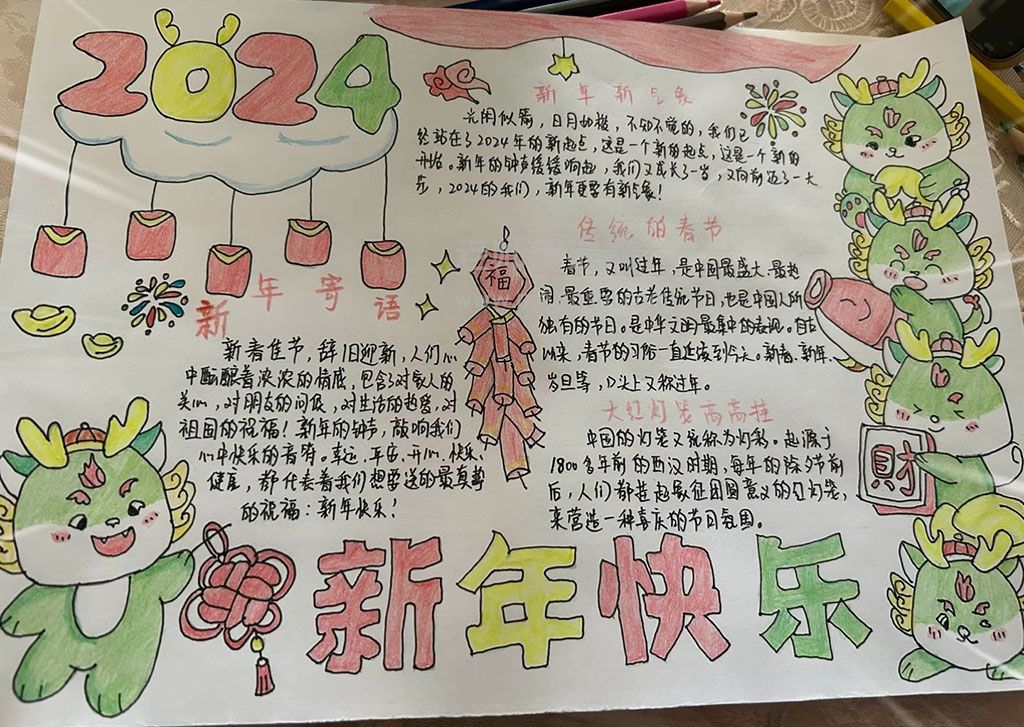 2024
新年新气象
光阴似箭，日月如梭，不知不觉的，我们已
经站在了2024年的新起点，这是一个新的起点，这是一个新的
开始。新年的钟声缓缓响起，我们又成长了一岁，又向前迈了一大
步，2024的我们，新年更要有新气象！
传统的春节
春节，又叫过年，是中国最盛大、最热
闹、最重要的古老传统节日，也是中国人所
独有的节日。是中华文明最集中的表现。自古
以来，春节的习俗一直延续到今天。新春、新年、
岁旦等，口头上又称过年。
大红灯笼高高挂
中国的灯笼又统称为灯彩。起源于
1800多年前的西汉时期，每年的除夕节前
后，人们都挂起象征团圆意义的红灯笼，
来营造一种喜庆的节日氛围。
新年寄语
新春佳节，辞旧迎新，人们心
中酝酿着浓浓的情感，包含了对家人的
关心，对朋友的问候，对生活的热爱，对
祖国的祝福！新年的钟声，敲响我们
心中快乐的音符。幸运、平安、开心、快乐、
健康，都代表着我们想要送的最真挚
的祝福：新年快乐！
福
財
新年快乐